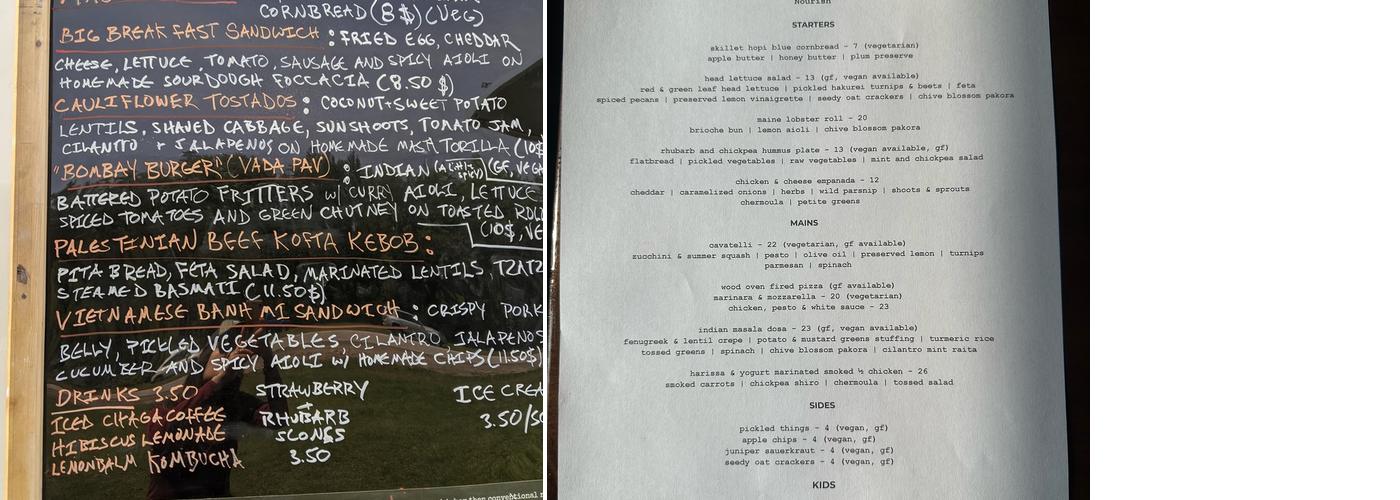 CORNBREAD (8$) (VEG)
BIG BREAK FAST SANDWICH : FRIED EGG, CHEDDAR
CHEESE, LETTUCE, TOMATO, SAUSAGE AND SPICY AIOLI ON
HOMEMADE SOURDOUGH FOCCACIA (8.50 $)
CAULIFLOWER TOSTADOS : COCONUT + SWEET POTATO
LENTILS, SHAVED CABBAGE, SUNSHOOTS, TOMATO JAM,
CILANTTO + JALAPENOS ON HOMEMADE MASA TORILLA (10$
"BOMBAY BURGER" (VADA PAV) : INDIAN (A LITTLE SPICY) (GF, VEGA
BATTERED POTATO FRITTERS W/ CURRY AIOLI, LETTUCE
SPICED TOMATOES AND GREEN CHUTNEY ON TOASTED ROLL
(10$, VE
PALESTENIAN BEEF KOFTA KEBOB :
PITA BREAD, FETA SALAD, MARINATED LENTILS, TZATZ
STEAMED BASMATI (11.50$)
VIETNAMESE BANH MI SANDWICH : CRISPY PORK
BELLY, PICKLED VEGETABLES, CILANTRO, JALAPENOS
CUCUMBER AND SPICY AIOLI W/ HOMEMADE CHIPS (11.50$)
DRINKS 3.50
ICED CHAGA COFFEE
HIBISCUS LEMONADE
LEMONBALM KOMBUCHA
STRAWBERRY
+
RHUBARB
SCONES
3.50
ICE CREA
3.50/5
than conventional
Nourish
STARTERS
skillet hopi blue cornbread - 7 (vegetarian)
apple butter | honey butter | plum preserve
head lettuce salad - 13 (gf, vegan available)
red & green leaf head lettuce | pickled hakurei turnips & beets | feta
spiced pecans | preserved lemon vinaigrette | seedy oat crackers | chive blossom pakora
maine lobster roll - 20
brioche bun | lemon aioli | chive blossom pakora
rhubarb and chickpea hummus plate - 13 (vegan available, gf)
flatbread | pickled vegetables | raw vegetables | mint and chickpea salad
chicken & cheese empanada - 12
cheddar | caramelized onions | herbs | wild parsnip | shoots & sprouts
chermoula | petite greens
MAINS
cavatelli - 22 (vegetarian, gf available)
zucchini & summer squash | pesto | olive oil | preserved lemon | turnips
parmesan | spinach
wood oven fired pizza (gf available)
marinara & mozzarella - 20 (vegetarian)
chicken, pesto & white sauce - 23
indian masala dosa - 23 (gf, vegan available)
fenugreek & lentil crepe | potato & mustard greens stuffing | turmeric rice
tossed greens | spinach | chive blossom pakora | cilantro mint raita
harissa & yogurt marinated smoked ½ chicken - 26
smoked carrots | chickpea shiro | chermoula | tossed salad
SIDES
pickled things - 4 (vegan, gf)
apple chips - 4 (vegan, gf)
juniper sauerkraut - 4 (vegan, gf)
seedy oat crackers - 4 (vegan, gf)
KIDS